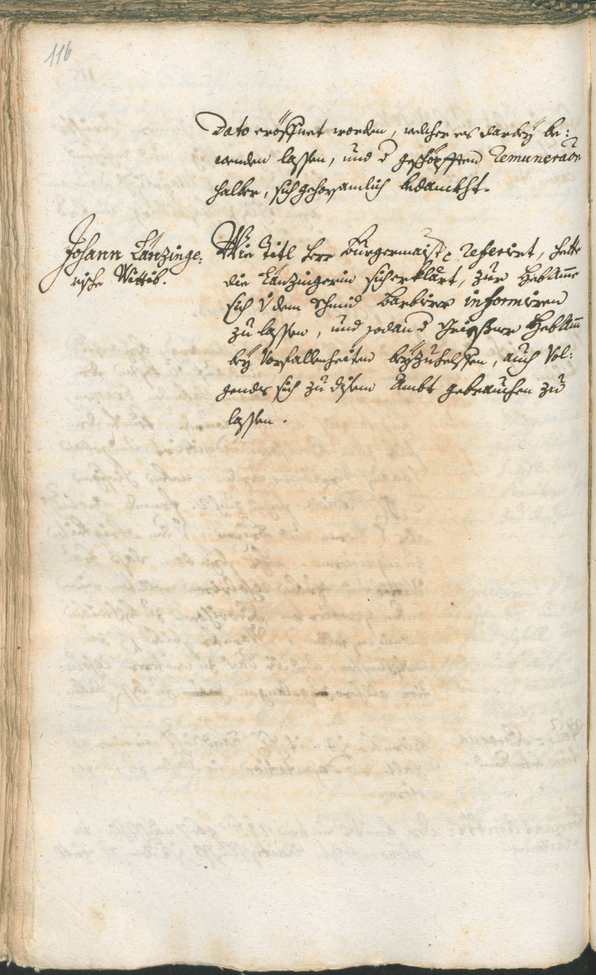 116
Dato eröffnet worden, welcher es darbey be:
wenden lassen, und d geschöpfften Remuneraōn
halber, sich gehorsamlich bedankht.
Johann Länzinge:
rische Wittib.
Wie Titl Herr Burgermaister referiret, hette
die Länzingerin sich erklärt, zur Heb
sich v dem Schmid Barbier informiren
zu lassen, und sodan d Heb
bey Vorfallenheiten beyzuhelffen, auch Vol:
gends sich zu disem Ambt gebrauchen zu
lassen.